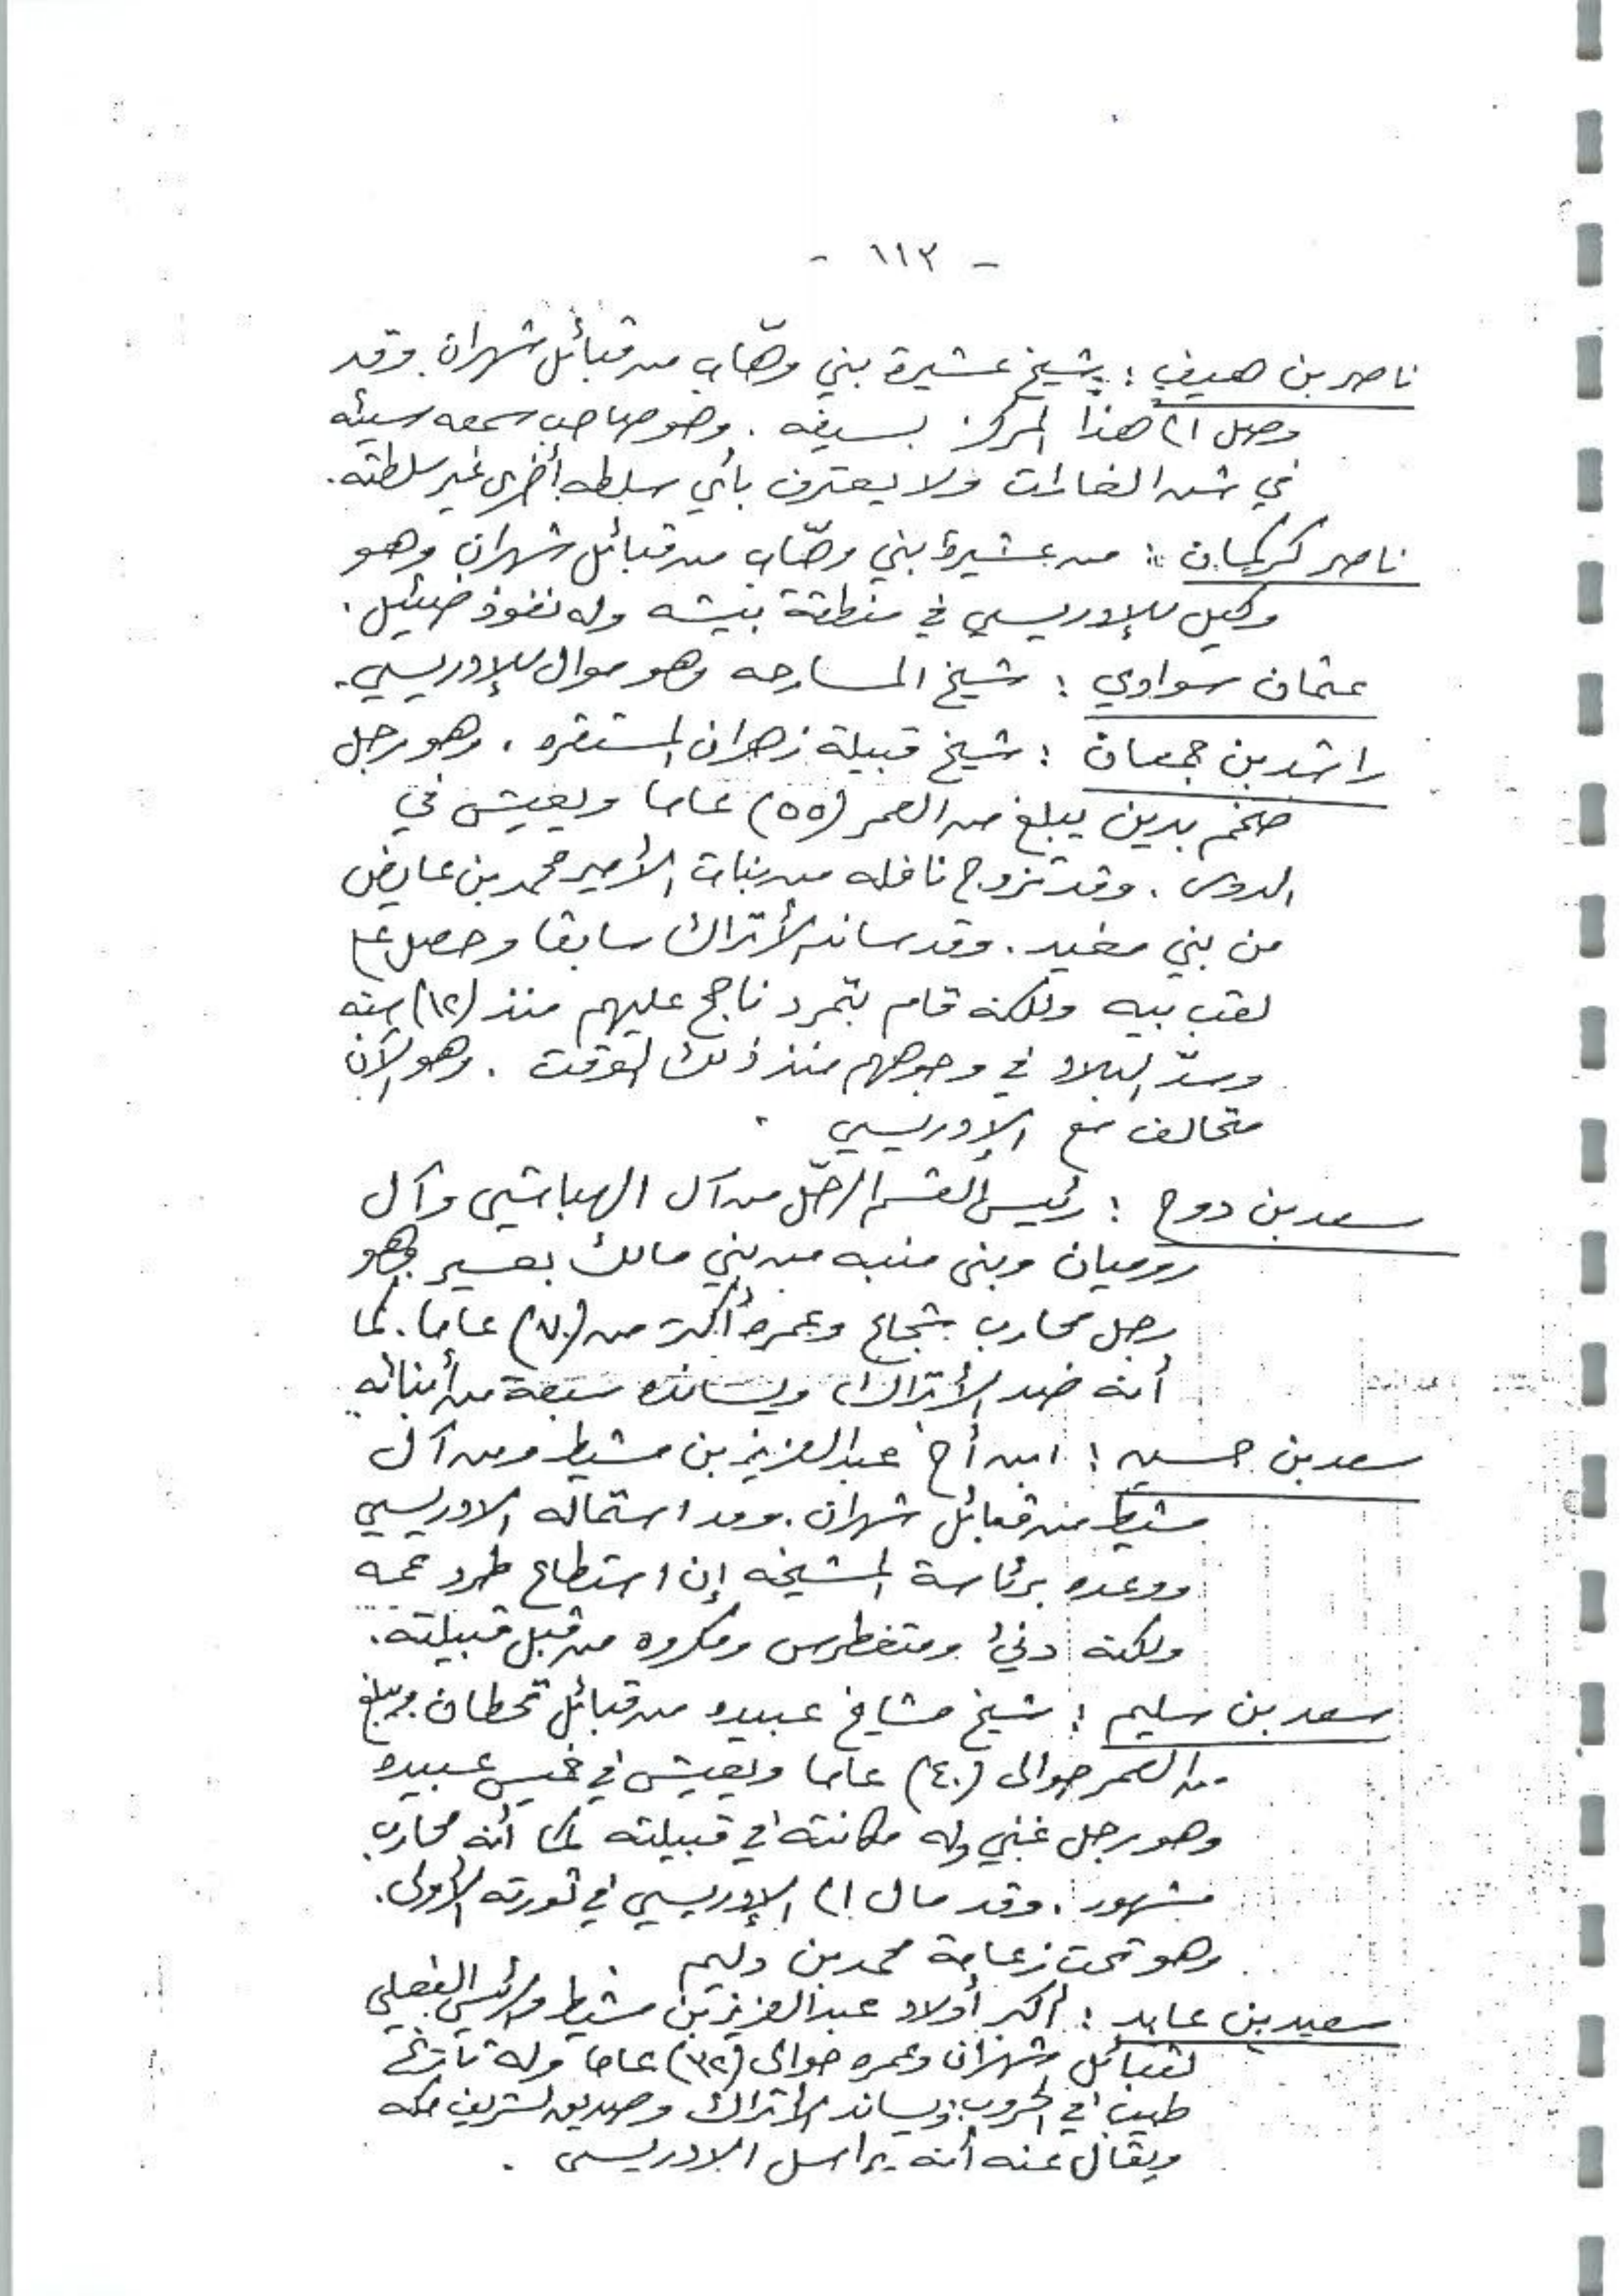 - ١١٣ -
ناصر بن هيف : شيخ عشيرة بني وهّاب من قبائل شهران. وقد
وصل الى هذا المركز بسيفه . وهو صاحب سمعه سيئه
في شن الغارات ولا يعترف بأي سلطه أخرى غير سلطته .
ناصر كركمان : من عشيرة بني وهّاب من قبائل شهران وهو
وكيل للإدريسي في منطقة بيشه وله نفوذ ضئيل .
عثمان سوادي : شيخ المسارحه وهو موال للإدريسي .
راشد بن جمعان : شيخ قبيلة زهران المستقره . وهو رجل
ضخم بدين يبلغ من العمر (٥٥) عاما ويعيش في
الدوس . وقد تزوج نافله من بنات الأمير محمد بن عايض
من بني مغيد . وقد ساند الأتراك سابقا وحصل على
لقب بيه ولكنه قام بتمرد ناجح عليهم منذ (١٢) سنه
وسدّ البلاد في وجوههم منذ ذلك الوقت . وهو الآن
متحالف مع الإدريسي .
سعد بن دوح : رئيس القسم الرحّل من آل الهباشي وآل
روميان وبنى منبه من بني مالك بعسير وهو
رجل محارب شجاع وعمره أكثر من (٧٠) عاما . كما
أنه ضد الأتراك ويسانده سبعة من أبنائه
سعد بن حسين : ابن أخ عبدالعزيز بن مشيط ومن آل
مشيط من قبائل شهران . وقد استماله الادريسي
ووعده برئاسة المشيخه إن استطاع طرد عمه
ولكنه دنيء ومتغطرس ومكروه من قبل قبيلته .
سعد بن سليم : شيخ مشايخ عبيده من قبائل قحطان ويبلغ
من العمر حوالى (٤٠) عاما ويعيش في خميس عبيده
وهو رجل غني وله مكانته في قبيلته كما أنه محارب
مشهور . وقد مال الى الإدريسي في ثورته الأولى .
وهو تحت زعامة محمد بن دليم .
سعيد بن عابد : أكبر أولاد عبدالعزيز بن مشيط والرئيس الفعلي
لقبائل شهران وعمره حوالى (٣٢) عاما وله تاريخ
طيب في الحروب ويساند الأتراك وصديق لشريف مكه
ويقال عنه أنه يراسل الادريسى .